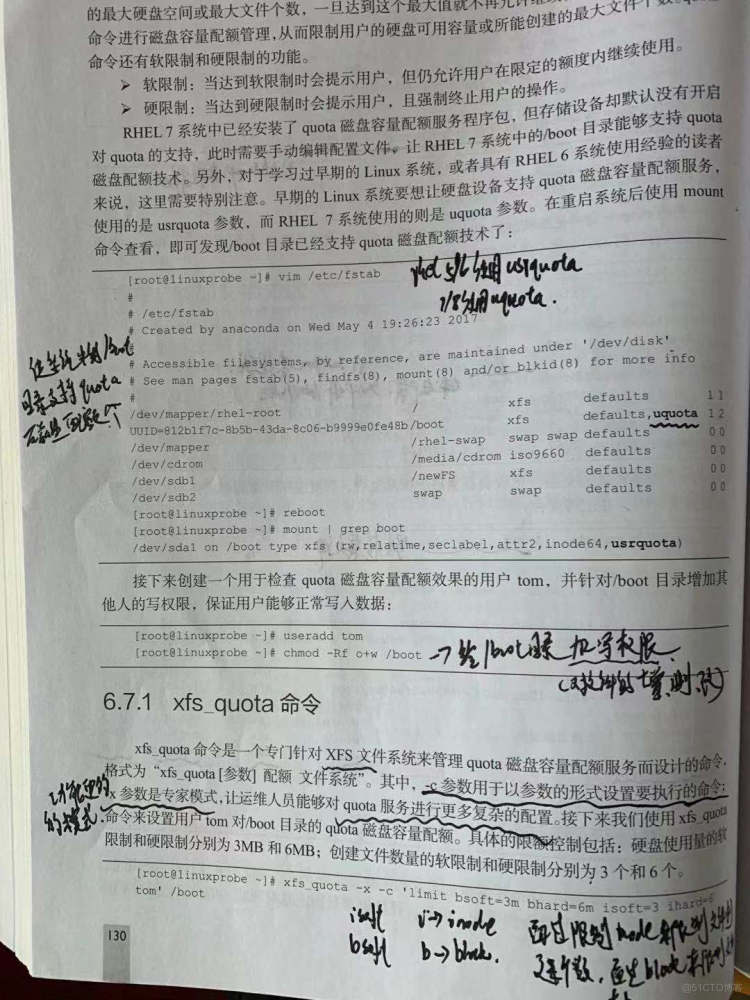 的最大硬盘空间或最大文件个数，一旦达到这个最大值就不再允许继续
命令进行磁盘容量配额管理，从而限制用户的硬盘可用容量或所能创建的最大文件个数。
命令还有软限制和硬限制的功能。
➢ 软限制：当达到软限制时会提示用户，但仍允许用户在限定的额度内继续使用。
➢ 硬限制：当达到硬限制时会提示用户，且强制终止用户的操作。
RHEL 7 系统中已经安装了 quota 磁盘容量配额服务程序包，但存储设备却默认没有开启
对 quota 的支持，此时需要手动编辑配置文件，让 RHEL 7 系统中的/boot 目录能够支持 quota
磁盘配额技术。另外，对于学习过早期的 Linux 系统，或者具有 RHEL 6 系统使用经验的读者
来说，这里需要特别注意。早期的 Linux 系统要想让硬盘设备支持 quota 磁盘容量配额服务，
使用的是 usrquota 参数，而 RHEL 7 系统使用的则是 uquota 参数。在重启系统后使用 mount
命令查看，即可发现/boot 目录已经支持 quota 磁盘配额技术了：
[root@linuxprobe ~]# vim /etc/fstab
rhel 5/6使用usrquota
7/8使用uquota.
#
# /etc/fstab
# Created by anaconda on Wed May 4 19:26:23 2017
#
# Accessible filesystems, by reference, are maintained under '/dev/disk'
# See man pages fstab(5), findfs(8), mount(8) and/or blkid(8) for more info
#
/dev/mapper/rhel-root / xfs defaults 1 1
UUID=812b1f7c-8b5b-43da-8c06-b9999e0fe48b /boot xfs defaults,uquota 1 2
/dev/mapper /rhel-swap swap swap defaults 0 0
/dev/cdrom /media/cdrom iso9660 defaults 0 0
/dev/sdb1 /newFS xfs defaults 0 0
/dev/sdb2 swap swap defaults 0 0
/boot
目录支持quota
[root@linuxprobe ~]# reboot
[root@linuxprobe ~]# mount | grep boot
/dev/sda1 on /boot type xfs (rw,relatime,seclabel,attr2,inode64,usrquota)
接下来创建一个用于检查 quota 磁盘容量配额效果的用户 tom，并针对/boot 目录增加其
他人的写权限，保证用户能够正常写入数据：
[root@linuxprobe ~]# useradd tom
[root@linuxprobe ~]# chmod -Rf o+w /boot
→给/boot目录 加写权限.
(对文件的增、删、改)
6.7.1 xfs_quota 命令
xfs_quota 命令是一个专门针对 XFS 文件系统来管理 quota 磁盘容量配额服务而设计的命令，
格式为“xfs_quota [参数] 配额 文件系统”。其中，-c 参数用于以参数的形式设置要执行的命令；
-x 参数是专家模式，让运维人员能够对 quota 服务进行更多复杂的配置。接下来我们使用 xfs_quota
命令来设置用户 tom 对/boot 目录的 quota 磁盘容量配额。具体的限额控制包括：硬盘使用量的软
限制和硬限制分别为 3MB 和 6MB；创建文件数量的软限制和硬限制分别为 3 个和 6 个。
[root@linuxprobe ~]# xfs_quota -x -c 'limit bsoft=3m bhard=6m isoft=3 ihard=6
tom' /boot
isoft i→inode
bsoft b→block.
130
@51CTO博客